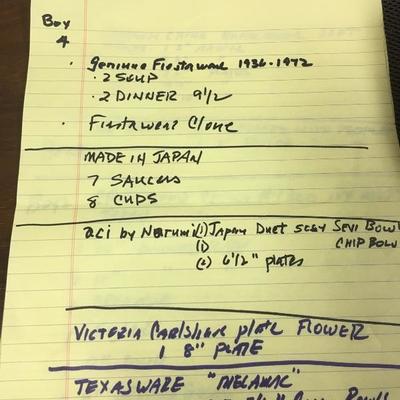 Box
4
· Genuine Fiestaware 1936-1972
· 2 SOUP
· 2 DINNER 9 1/2
· Fiestaware Clone
MADE IN JAPAN
7 SAUCERS
8 CUPS
aci by Narumi (1) Japan Duet Bowl
(1) CHIP BOWL
6 1/2" plates
VICTORIA Carlsbad plate FLOWER
1 8" PLATE
TEXASWARE "MELAMAC"